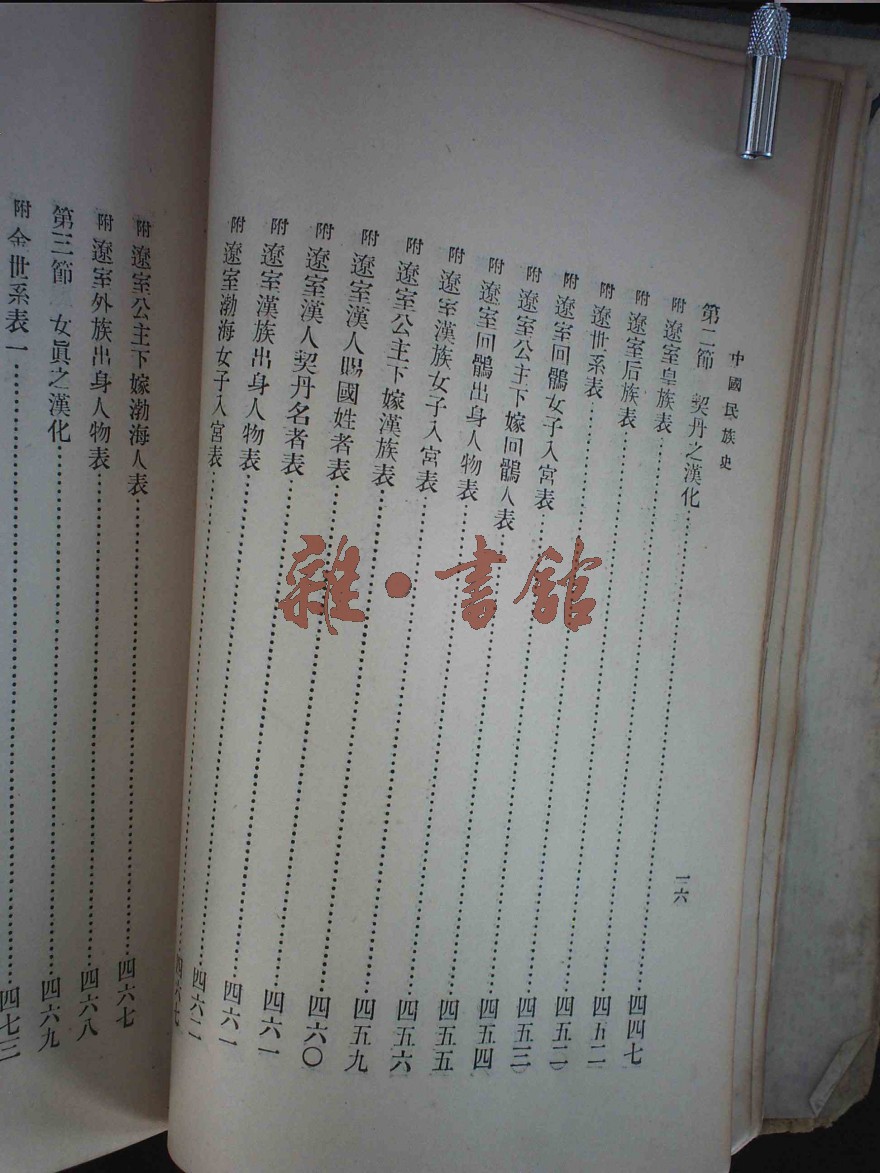 中國民族史
二六
第二節 契丹之漢化……四四七
附 遼室皇族表……四五二
附 遼室后族表……四五二
附 遼世系表……四五三
附 遼室回鶻女子入宮表……四五四
附 遼室公主下嫁回鶻人表……四五五
附 遼室回鶻出身人物表……四五六
附 遼室漢族女子入宮表……四五九
附 遼室公主下嫁漢族表……四六〇
附 遼室漢人賜國姓者表……四六一
附 遼室漢人契丹名者表……四六一
附 遼室漢族出身人物表……四六二
附 遼室渤海女子入宮表……四六七
附 遼室公主下嫁渤海人表……四六七
附 遼室外族出身人物表……四六八
第三節 女眞之漢化……四六九
附 金世系表一……四七三
雜·書館